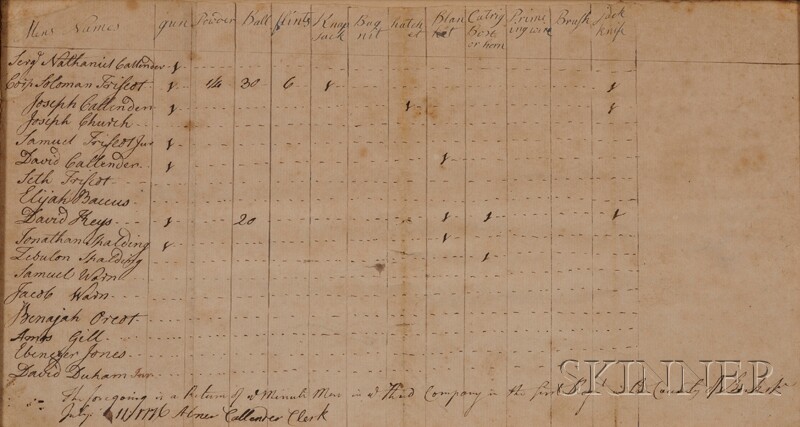 Mens Names gun Powder Ball flints Knap sack Bag nit hatch et Blan kit Catrig Box or horn Prime ing wire Brush Jack knife
Serg Nathaniel Callender 1
Corp Soloman Triscot 1 1/4 30 6 1 1
Joseph Callender 1 1 1
Joseph Church
Samuel Triscot Jur 1
David Callender 1 1
Seth Triscot
Elijah Baccus
David Keys 1 20 1 1 1
Jonathan Spalding 1 1
Zebulon Spalding 1
Samuel Warn
Jacob Warn
Benajah Orcot
Amos Gill
Ebenezer Jones
David Duham Jur
The foregoing is a Return of Minute Men in Third Company in the first County of
July 11/1776 Abner Callender Clerk
SKINNER